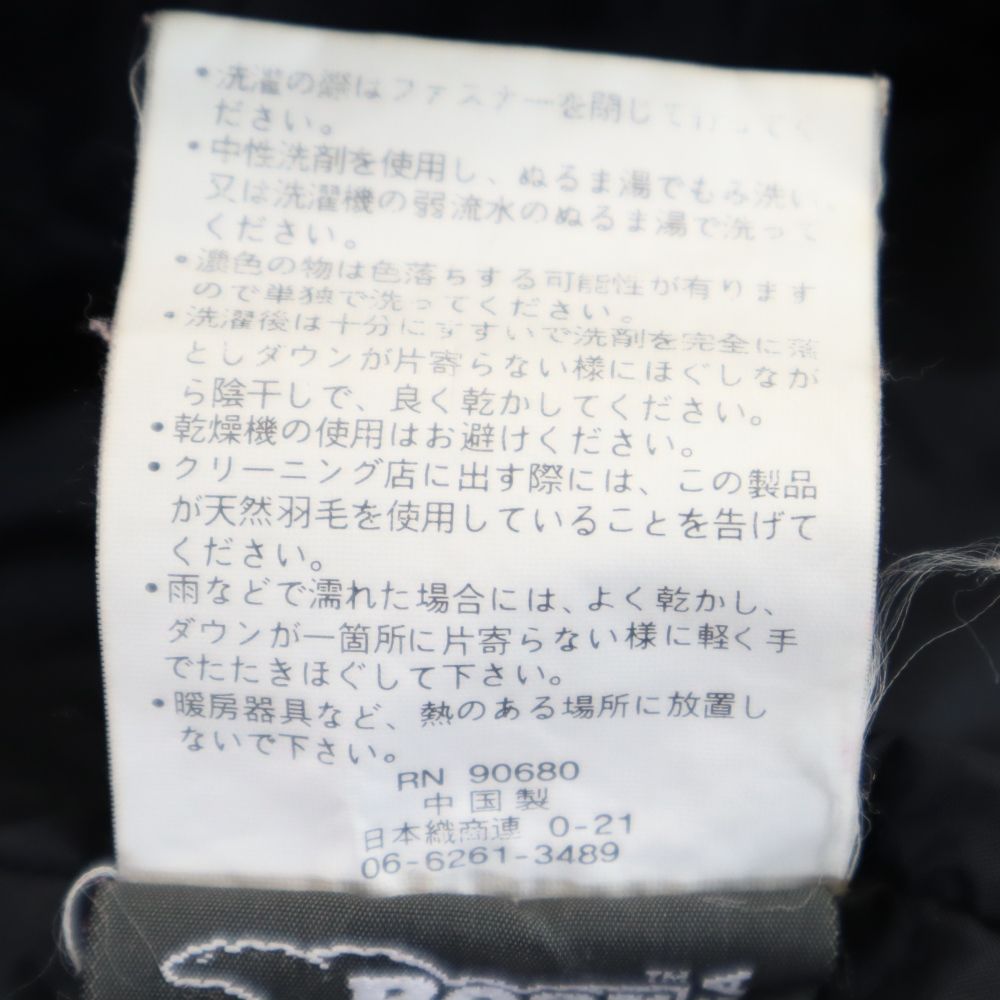 ・洗濯の際はファスナーを閉じて行ってく
ださい。
・中性洗剤を使用し、ぬるま湯でもみ洗い、
又は洗濯機の弱流水のぬるま湯で洗って
ください。
・濃色の物は色落ちする可能性が有ります
ので単独で洗ってください。
・洗濯後は十分にすすいで洗剤を完全に落
としダウンが片寄らない様にほぐしなが
ら陰干しで、良く乾かしてください。
・乾燥機の使用はお避けください。
・クリーニング店に出す際には、この製品
が天然羽毛を使用していることを告げて
ください。
・雨などで濡れた場合には、よく乾かし、
ダウンが一箇所に片寄らない様に軽く手
でたたきほぐして下さい。
・暖房器具など、熱のある場所に放置し
ないで下さい。
RN 90680
中国製
日本織商連 0-21
06-6261-3489